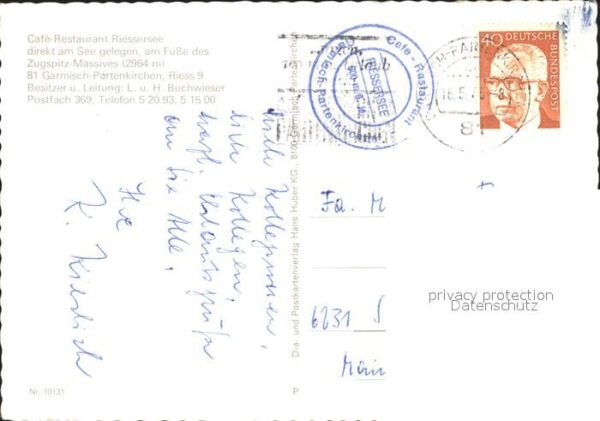 Café-Restaurant Riessersee
direkt am See gelegen, am Fuße des
Zugspitz-Massives (2964 m)
81 Garmisch-Partenkirchen, Riess 9
Besitzer u. Leitung: L. u. H. Buchwieser
Postfach 369, Telefon 5 20 93, 5 15 00
Kolleginnen,
Kollegen,
Urlaubsgrüße
an Sie Alle,
Ihr
K.
Nr. 10131
Dia- und Postkartenverlag Hans Huber KG., 8100 Garmisch-Partenkirchen
P
Cafe - Restaurant
RIESSERSEE
Garmisch-Partenkirchen
81
40 DEUTSCHE
BUNDESPOST
Fa. M
6231 S
Main
privacy protection
Datenschutz